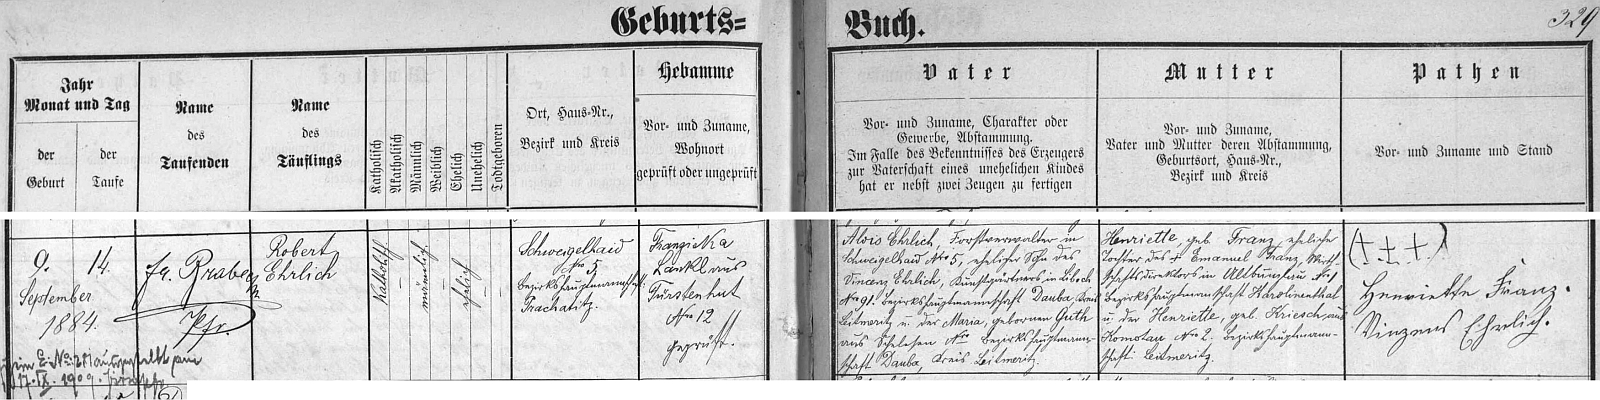 Geburts=
Buch.
329
Jahr
Monat und Tag
der
Geburt
der
Taufe
Name
des
Taufenden
Name
des
Täuflings
Katholisch
Akatholisch
Männlich
Weiblich
Ehelich
Unehelich
Todtgeboren
Ort, Haus=Nr.,
Bezirk und Kreis
Hebamme
Vor= und Zuname,
Wohnort
geprüft oder ungeprüft
Vater
Vor= und Zuname, Charakter oder
Gewerbe, Abstammung.
Im Falle des Bekenntnisses des Erzeugers
zur Vaterschaft eines unehelichen Kindes
hat er nebst zwei Zeugen zu fertigen
Mutter
Vor= und Zuname,
Vater und Mutter deren Abstammung,
Geburtsort, Haus=Nr.,
Bezirk und Kreis
Pathen
Vor= und Zuname und Stand
9.
14.
September
1884.
Pfr.
Robert
Ehrlich
Katholisch
männlich
ehelich
Schweigelhaid
Nro 5,
Bezirkshauptmannschaft
Prachatitz.
Franziska
Lankl aus
Fürstenhut
Nro 12
geprüft.
Alois Ehrlich, Forstverwalter in
Schweigelhaid Nro 5, ehelicher Sohn des
Vincenz Ehrlich, Kunstgärtners in
No 91. Bezirkshauptmannschaft Dauba, Kreis
Leitmeritz u. der Maria, gebornen Guth
aus Schelesen Nro Bezirkshauptmann-
schaft Dauba, Kreis Leitmeritz.
Henriette, geb. Franz, eheliche
Tochter des † Emanuel Franz, Wirth-
schaftsdirektors in No 1
Bezirkshauptmannschaft Karolinenthal
u. der Henriette, geb. Kriesch, aus
Komotau Nro 2. Bezirkshauptmann-
schaft Leitmeritz.
(†.†.†.)
Henriette Franz.
Vinzens Ehrlich.
ausgestellt am
17. IX. 1909.